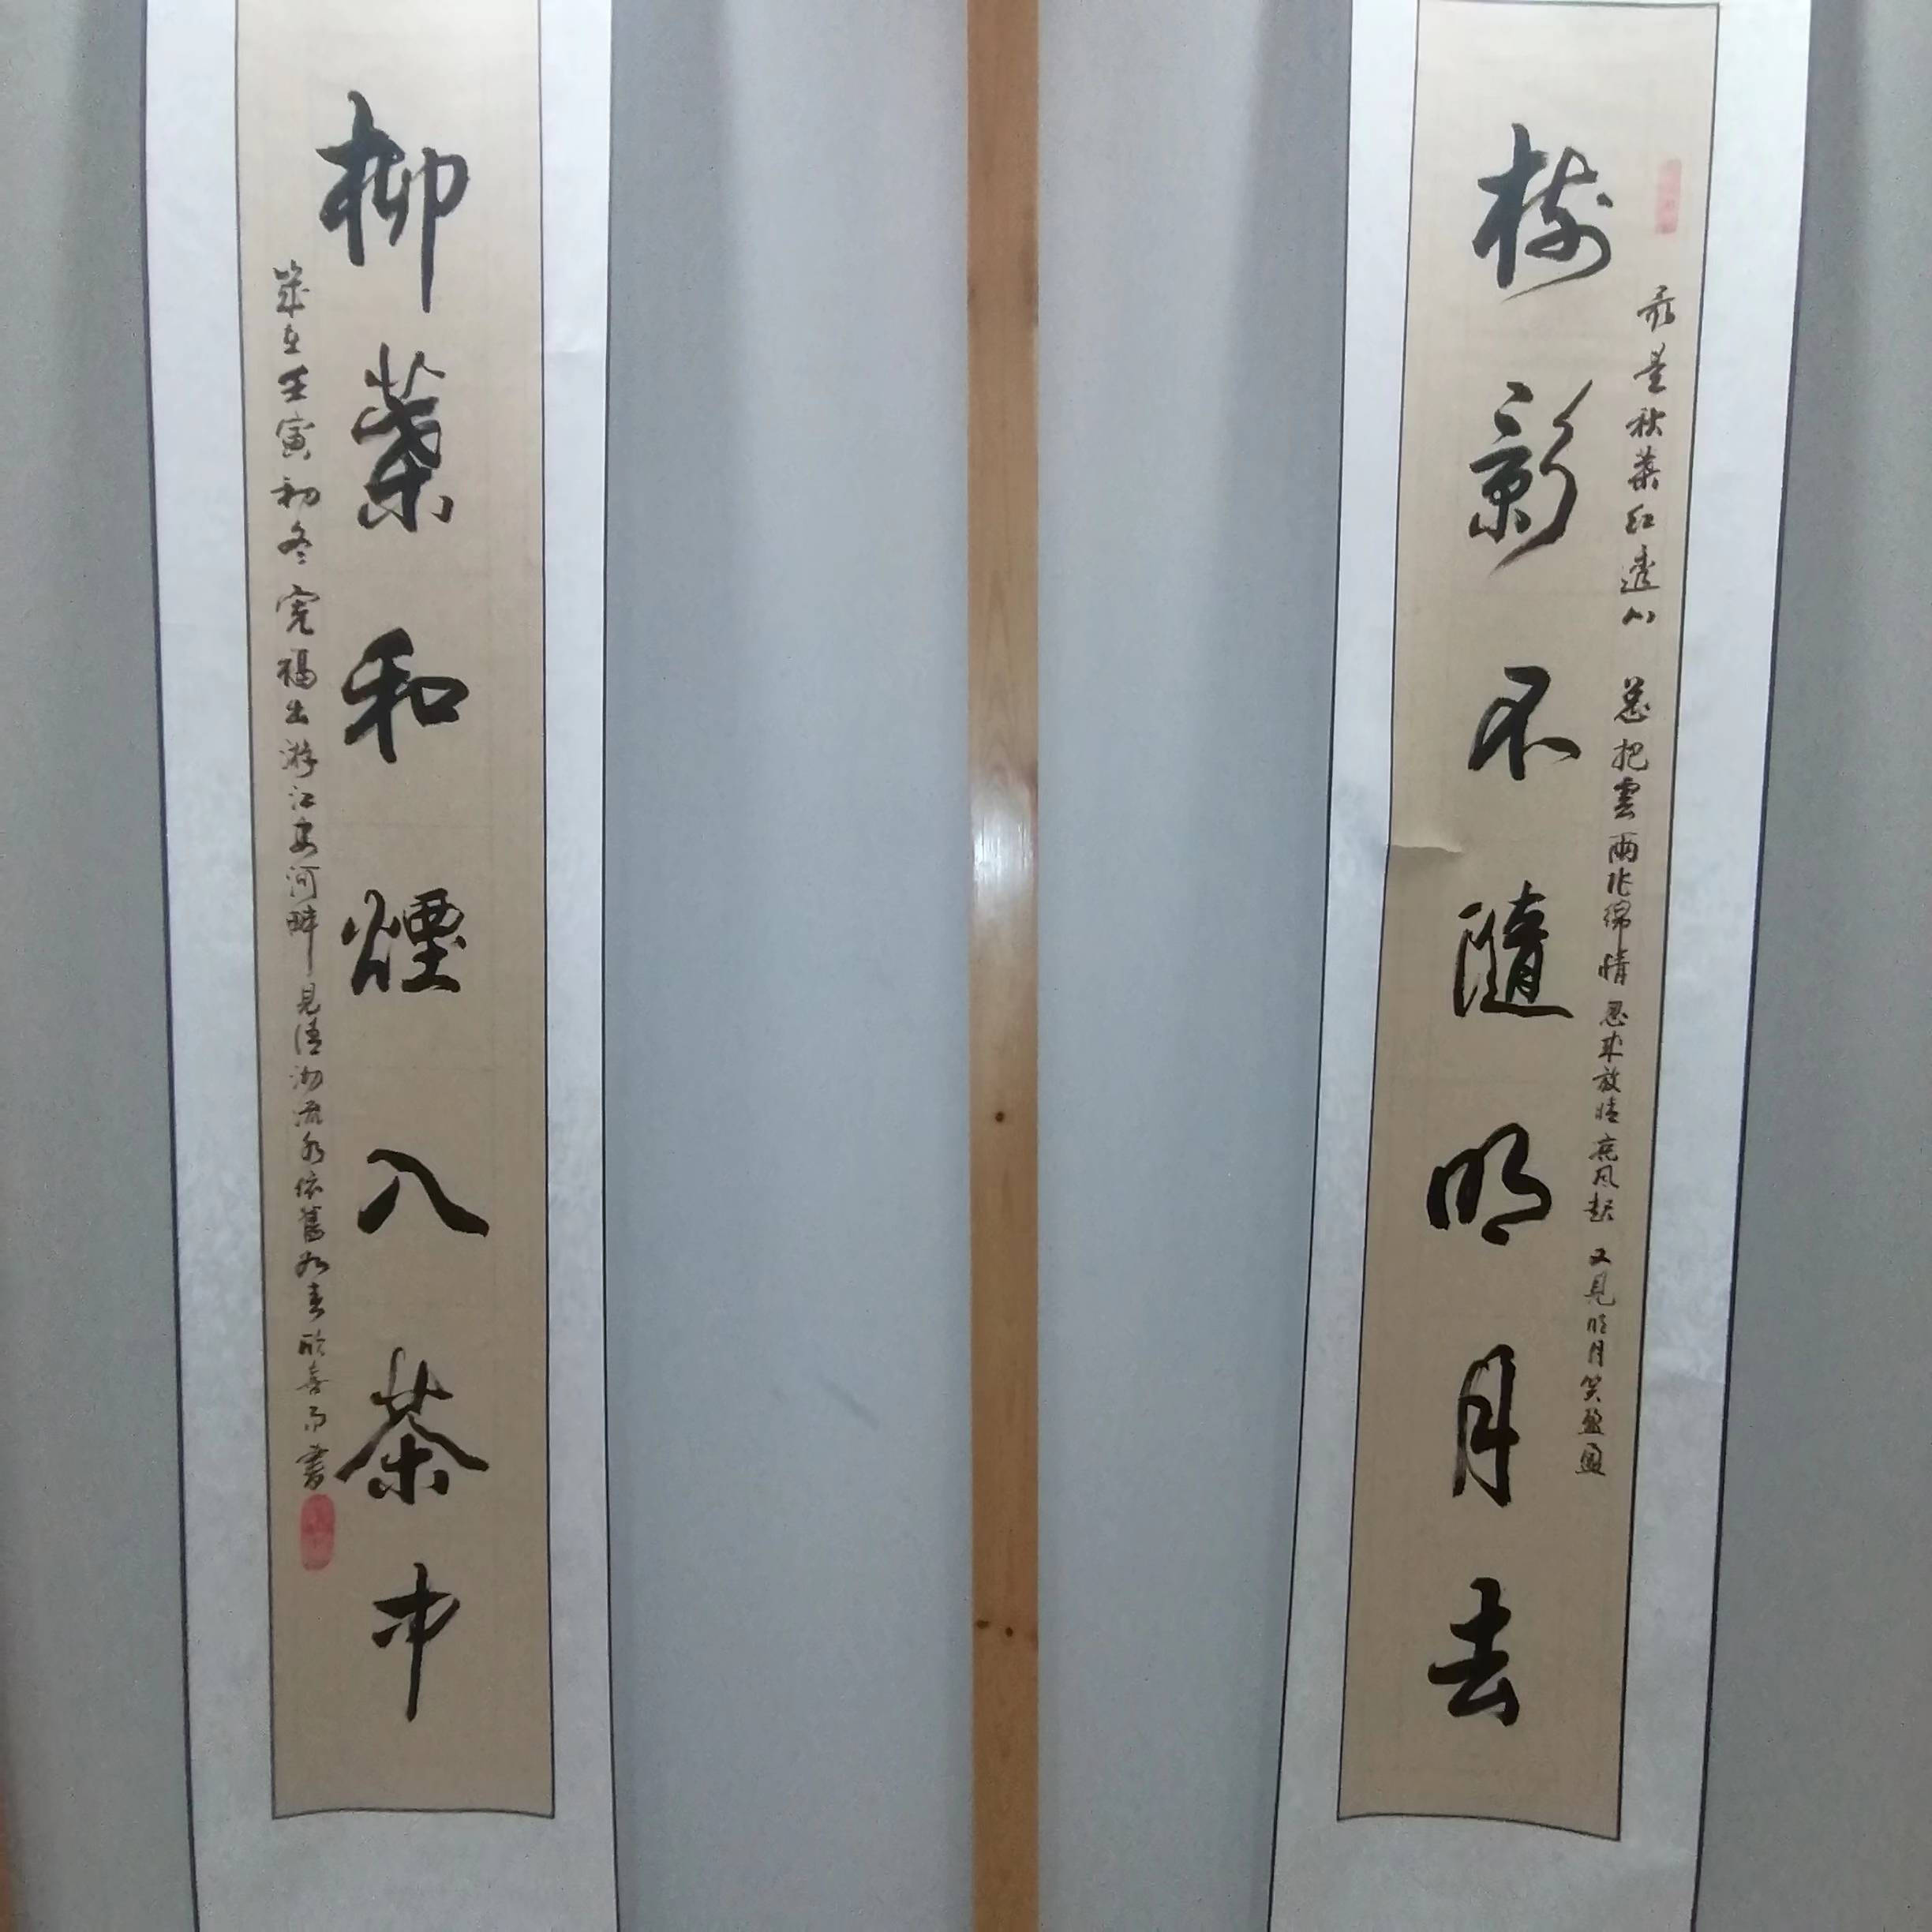 樹影不隨明月去
最是秋葉紅透心 總把雲雨化綿情 忽來放晴庭風起 又見明月笑盈盈
柳葉和煙入茶中
歲在壬寅初冬完福出游江安河畔見清澈流水依舊如春欣喜而書